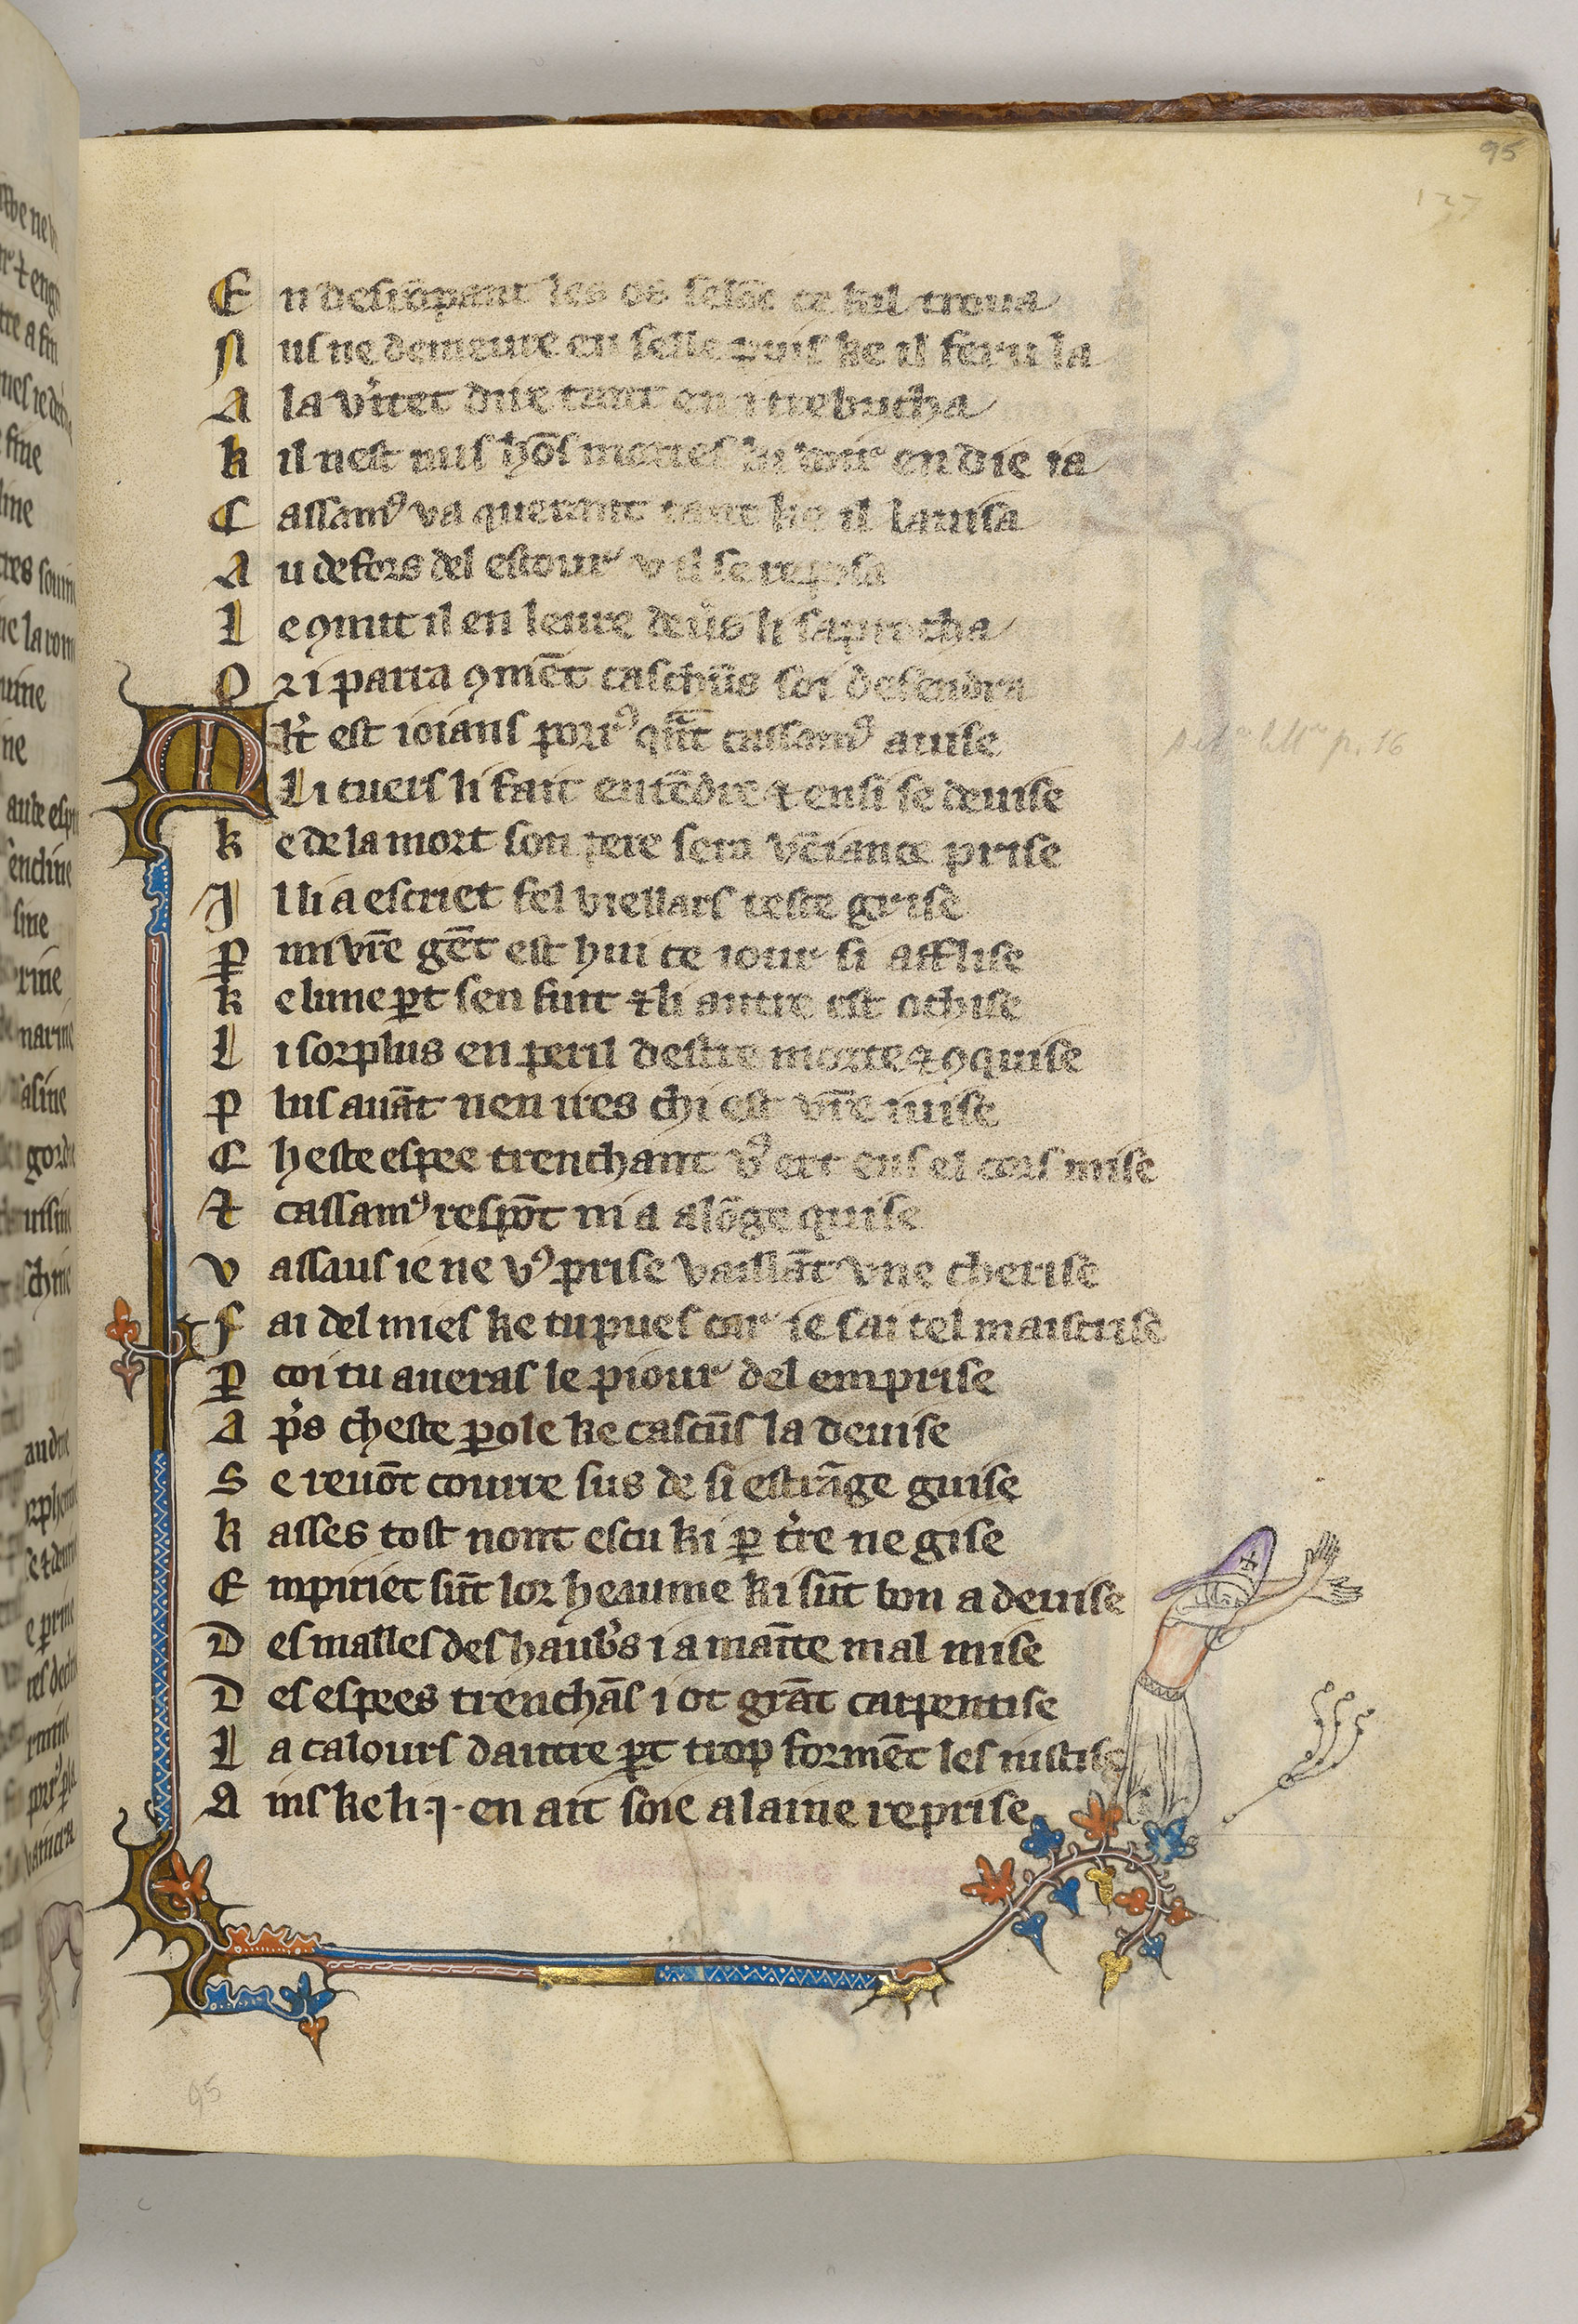 95
137
E n desrōpant les os selōc ce kil troua
N us ne demeure en selle puis ke il feru la
A la v'itet dire tant en i trebucha
k il nest nus hōs mortes ki voir en die ia
C assamꝰ va querant tant ke il lauisa
A u defors del estour v il se reposa
L e ꝯnut il en leure deu̾s li saprocha
O ri parra ꝯmēt caschūs soi defendra
M lt̾ est ioians porrꝰ qn̄t cassamꝰ auise
Li cuers li fait entēdre ⁊ ensi se deuise
k e de la mort son pere sera vēiance prise
J l li a escriet fel viellars teste grise
ꝑ mi vr̄e gēt est hui ce iour si afflise
k e lune ꝑt sen fuit ⁊ li autre est ochise
L i sorplus en peril destre morte ⁊ ꝯquise
P lus auāt nen ires chi est vr̄e iuise
C heste espee trenchant vꝰ ert ens el cors mise
⁊ cassamꝰ respōt ni a alōge quise
V assaus ie ne vꝰ prise vaillāt vne cherise
F ai del mies ke tu pues car ie sai tel maistrise
ꝑ coi tu aueras le piour del emprise
A p̾s cheste ꝑole ke cascūs la deuise
S e reuōt courre sus de si estrāge guise
k asses tost nont escu ki ꝑ t̾re ne gise
E mpiriet sūt lor heaume ki sūt bon a deuise
D es malles des haub̾s i a maīte mal mise
D es espees trenchās i ot grāt carpentise
L a calours dautre ꝑt trop formēt les iustise
A ins ke li ·j· en ait soie alaine reprise
95